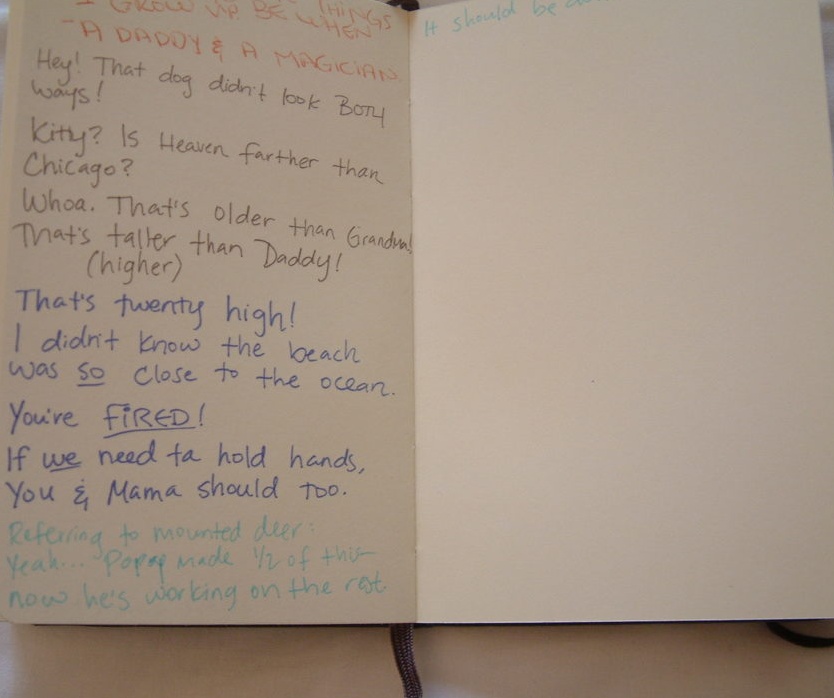 I GROW UP BE WHEN THINGS
-A DADDY & A MAGICIAN
Hey! That dog didn't look BOTH
ways!
Kitty? Is Heaven farther than
Chicago?
Whoa. That's older than Grandma!
That's taller than Daddy!
(higher)
That's twenty high!
I didn't know the beach
was so close to the ocean.
You're FIRED!
If we need ta hold hands,
You & Mama should too.
Referring to mounted deer:
Yeah... Popop made 1/2 of this
now he's working on the rest
It should be